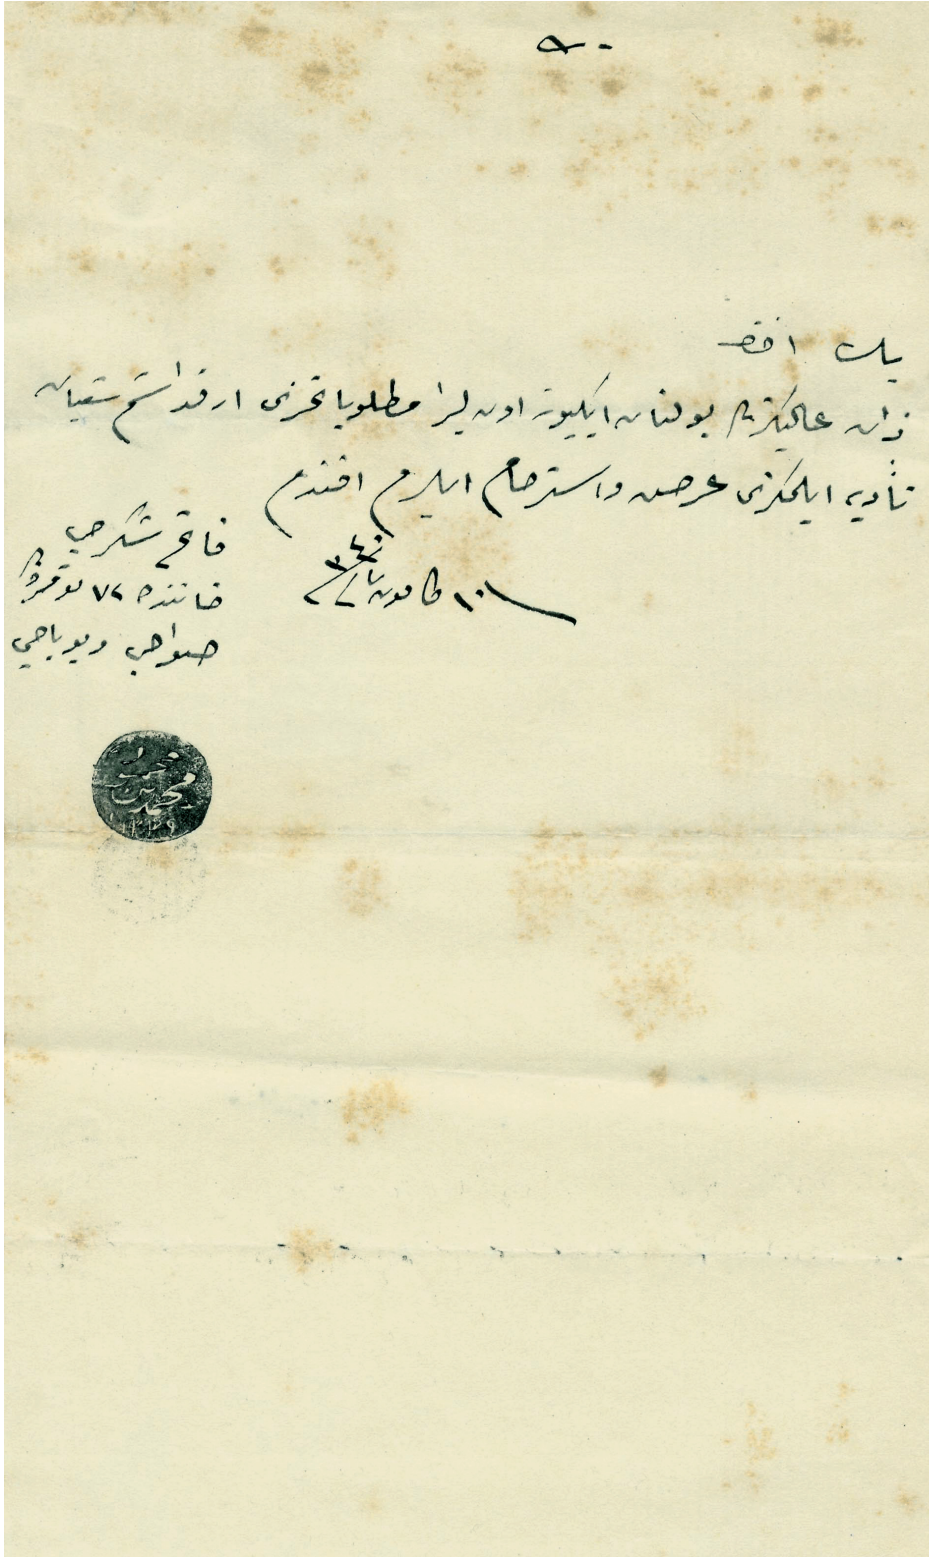 بك افندی
ذات عالیكزده بولنان ایكیوز اون لیرا مطلوباتمزی ارقداشم شعبان
تأدیه ایلمكزی عرض و استرحام ایلرم افندم
١٠ كانون ٣٤٠
فاتح شكرجی
خاننده ٧٢ نومروده
صواجی و بویاجی
محمد بن محمود
١٣٢٩